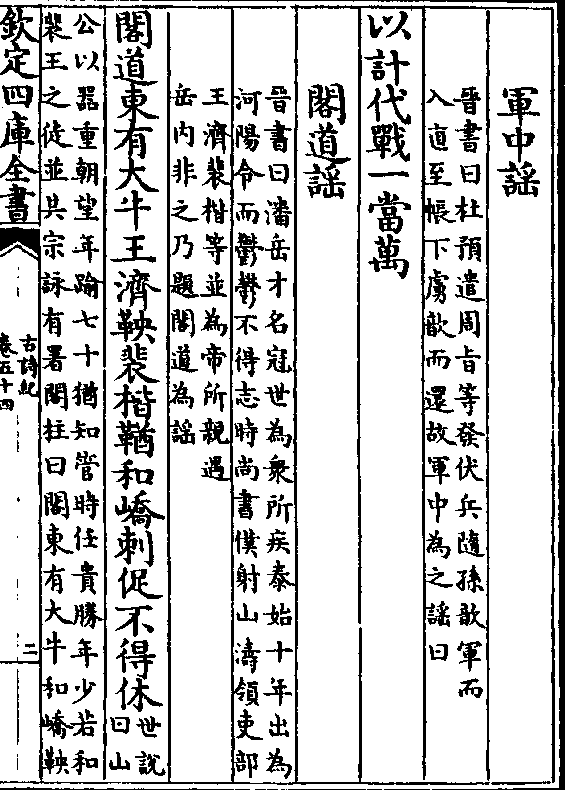 軍中謡
晉書曰杜預遣周旨等發伏兵隨孫歆軍而
入直至帳下虜歆而還故軍中為之謡曰
以計代戰一當萬
閣道謡
晉書曰潘岳才名冠世為衆所疾泰始十年出為
河陽令而鬱鬱不得志時尚書僕射山濤領吏部
王濟裴楷等並為帝所親遇
岳内非之乃題閣道為謡
閣道東有大牛王濟鞅裴楷鞧和嶠刺促不得休世說
曰山
公以器重朝望年踰七十猶知管時任貴勝年少若和
裴王之徒並共宗詠有署閣柱曰閣東有大牛和嶠鞅
欽定四庫全書
古詩紀
卷五十四
二